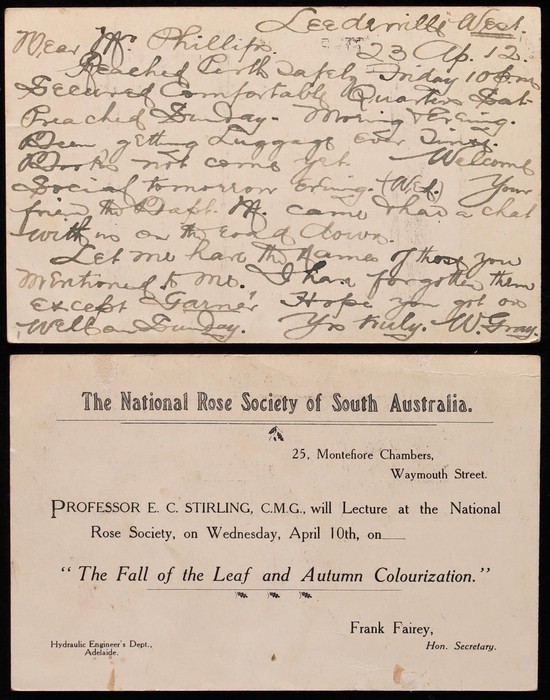 Leederville West.
23 Ap. 12.
Dear Mr Phillips.
Reached Perth safely Friday 10 p.m.
Secured Comfortable Quarters Sat.
Preached Sunday. Morning & Evening.
Been getting Luggage ever since.
Books not come yet Welcome
Social tomorrow evening. (Wed.) Your
friend the Bapt. M. came & had a chat
with us on the road down.
Let me have the names of those you
mentioned to me. I have forgotten them
except "Garner" Hope you got on
Well on Sunday. Yrs truly. W. Gray.
The National Rose Society of South Australia.
25, Montefiore Chambers,
Waymouth Street.
PROFESSOR E. C. STIRLING, C.M.G., will Lecture at the National
Rose Society, on Wednesday, April 10th, on
"The Fall of the Leaf and Autumn Colourization."
Frank Fairey,
Hon. Secretary.
Hydraulic Engineer's Dept.,
Adelaide.